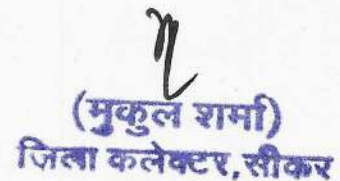 (मुकुल शर्मा)
ज़िला कलेक्टर,सीकर